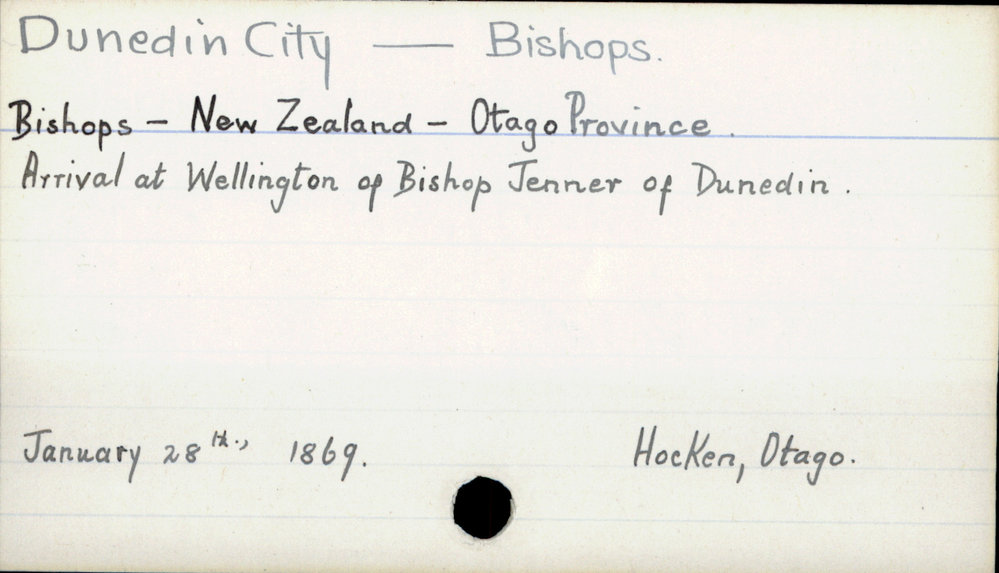 Dunedin City — Bishops.
Bishops – New Zealand – Otago Province.
Arrival at Wellington of Bishop Jenner of Dunedin.
January 28th., 1869. Hocken, Otago.